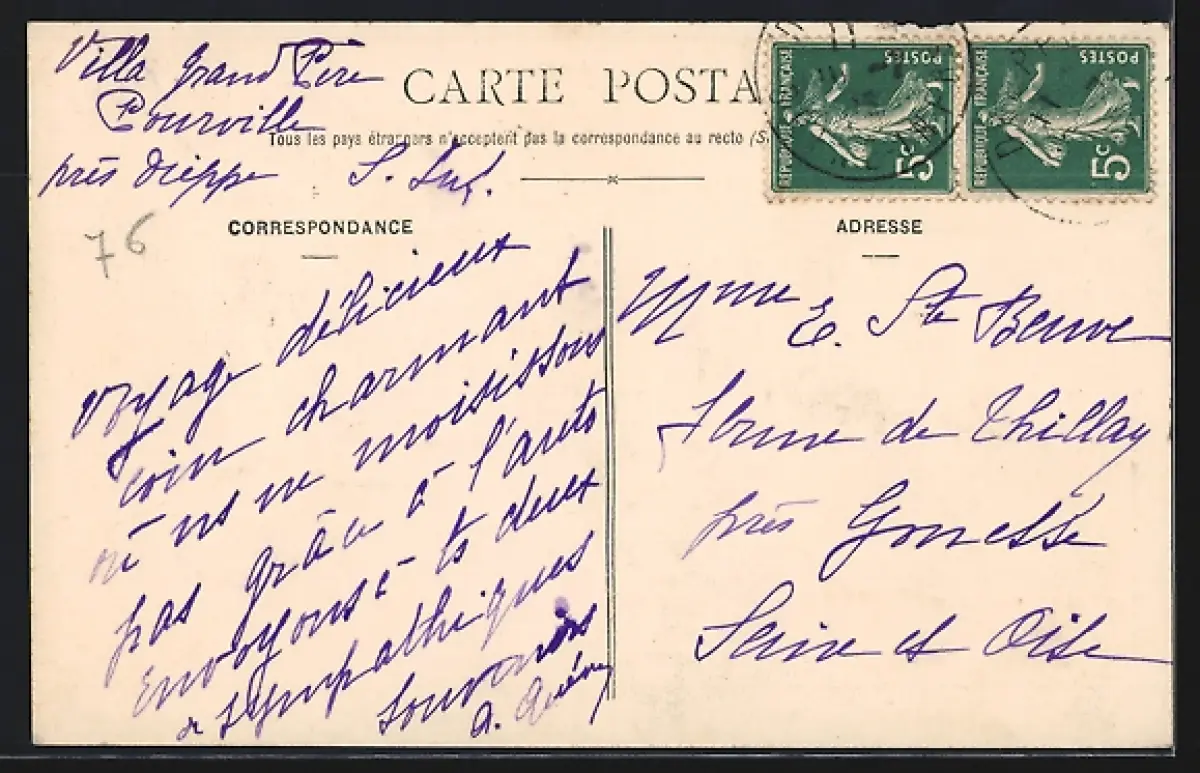 Villa Grand Père
Pourville
près Dieppe S. Inf.
CARTE POSTA
Tous les pays étrangers n'acceptent pas la correspondance au recto (S
RÉPUBLIQUE FRANÇAISE
POSTES
5c
RÉPUBLIQUE FRANÇAISE
POSTES
5c
76
CORRESPONDANCE
Voyage délicieux
coin charmant
où ns ne moisissons
pas grâce à l'auto
Envoyons à ts deux
sympathiques
souvenirs
A.
ADRESSE
Mme E. Ste Beuve
Ferme de Thillay
près Gonesse
Seine et Oise